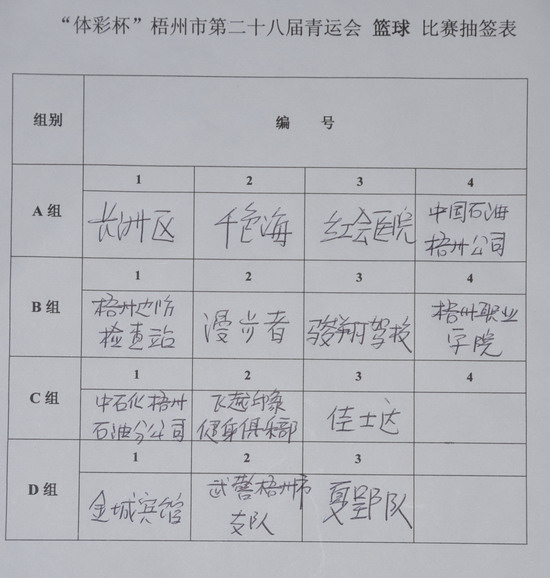 “体彩杯”梧州市第二十八届青运会 篮球 比赛抽签表
组别 编 号
A 组
1 2 3 4
长洲区 千色海 红会医院 中国石油
梧州公司
B 组
1 2 3 4
梧州边防 漫步者 骏翔驾校 梧州职业
检查站 学院
C 组
1 2 3 4
中石化梧州 飞越印象 佳士达
石油分公司 健身俱乐部
D 组
1 2 3
金城宾馆 武警梧州市 夏郢队
支队